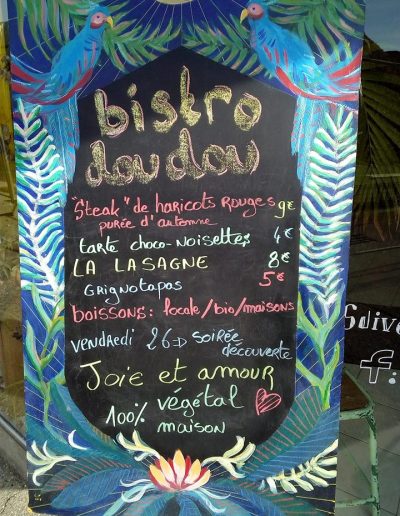 bistro
dou dou
"Steak" de haricots Rouges 9€
purée d'automne
tarte choco-noisettes 4€
LA LASAGNE 8€
Grignotapas 5€
boissons: locale/bio/maisons
vendredi 26 => soirée
découverte
Joie et amour
100% végétal
maison